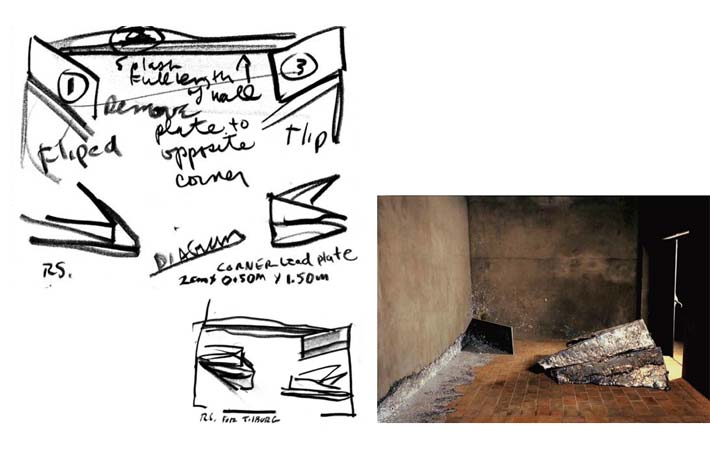 Splash
Full length
of wall
①
③
Remove
plate to
opposite
corner
Fliped
Flip
DIAGRAM
R.S.
CORNER Lead plate
2cm x 0.50M x 1.50m
R.S. FOR TILBURG